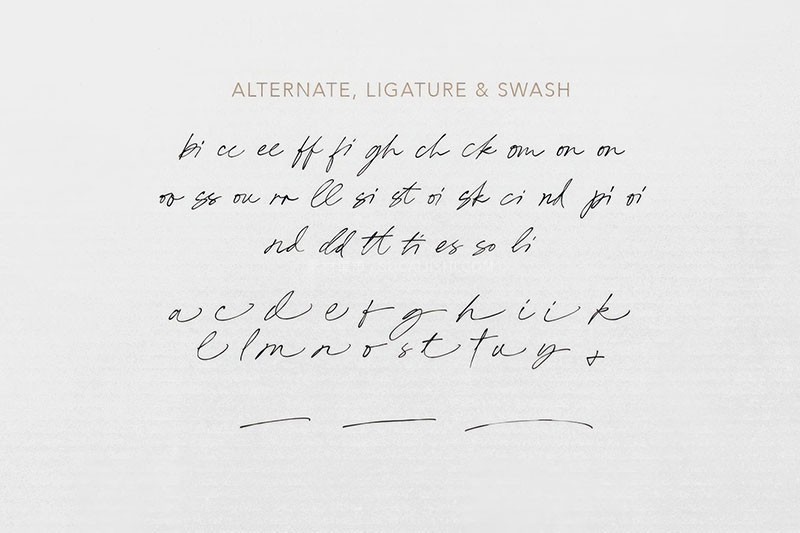 ALTERNATE, LIGATURE & SWASH
bi cc ee ff fi gh ch ck om on on
oo ss ou rr ll si st oi sk ci nd pi oi
nd dd tt ti es so li
a c d e f g h i i k
l l m n o s t t u y &